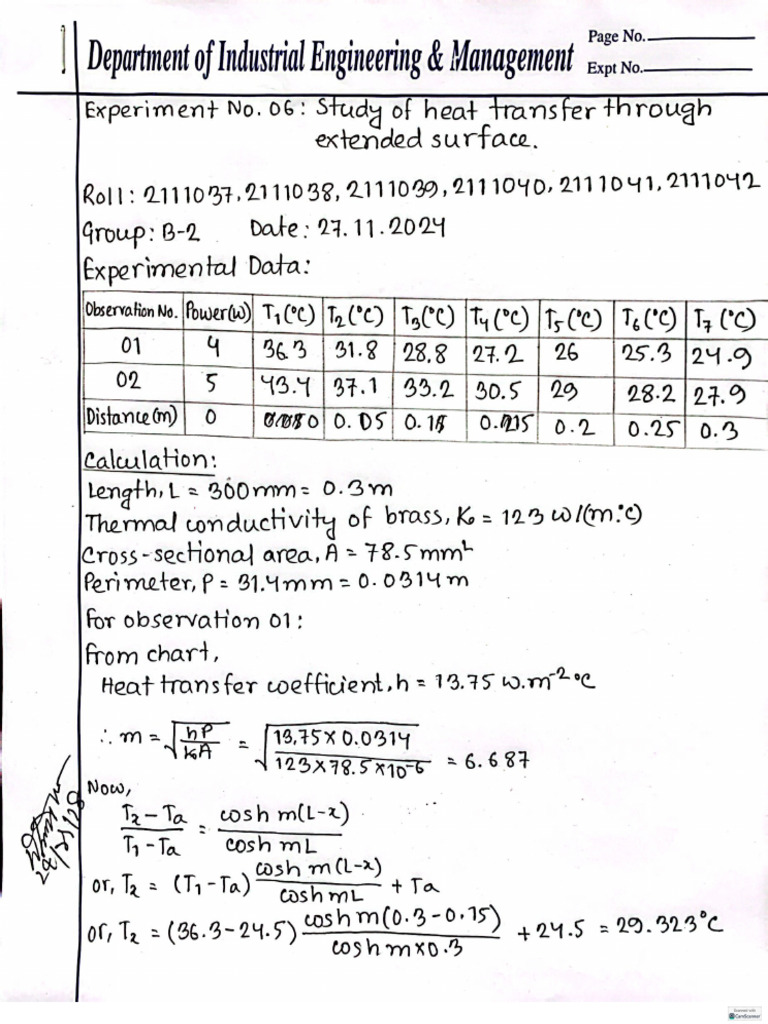 Department of Industrial Engineering & Management
Page No.
Expt No.
Experiment No. 06: Study of heat transfer through
extended surface.
Roll: 2111037, 2111038, 2111039, 2111040, 2111041, 2111042
Group: B-2 Date: 27.11.2024
Experimental Data:
Observation No. Power(W) T₁(°C) T₂(°C) T₃(°C) T₄(°C) T₅(°C) T₆(°C) T₇(°C)
01 4 36.3 31.8 28.8 27.2 26 25.3 24.9
02 5 43.4 37.1 33.2 30.5 29 28.2 27.9
Distance(m) 0 0 0.05 0.2 0.25 0.3
Calculation:
Length, L = 300mm = 0.3 m
Thermal conductivity of brass, K₀ = 123 W/(m.°C)
Cross-sectional area, A = 78.5 mm²
Perimeter, P = 31.4mm = 0.0314 m
For observation 01:
From chart,
Heat transfer coefficient, h = 13.75 W.m⁻² °C
∴ m = √(hP/K₀A) = √(13.75 × 0.0314 / 123 × 78.5 × 10⁻⁶) = 6.687
Now,
T₂ - Ta / T₁ - Ta = cosh m(L-x) / cosh mL
or, T₂ = (T₁ - Ta) cosh m(L-x) / cosh mL + Ta
or, T₂ = (36.3 - 24.5) cosh m(0.3 - 0.15) / cosh m×0.3 + 24.5 = 29.323°C
Scanned with
CamScanner